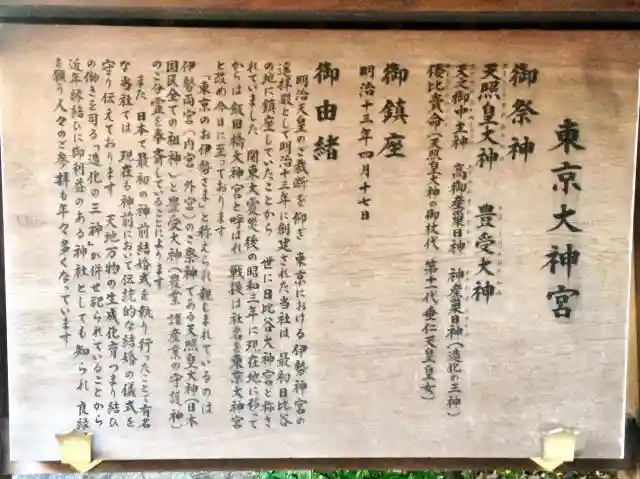 東京大神宮
御祭神
天照皇大神　豊受大神
天之御中主神　高御産巣日神　神産巣日神（造化の三神）
倭比賣命（天照皇大神の御杖代　第十一代垂仁天皇皇女）
御鎮座
明治十三年四月十七日
御由緒
明治天皇のご裁断を仰ぎ　東京における伊勢神宮の
遙拝殿として明治十三年に創建された当社は　最初日比谷
の地に鎮座していたことから　世に日比谷大神宮と称さ
れていました　関東大震災後の昭和三年に現在地に移って
からは飯田橋大神宮と呼ばれ　戦後は社名を東京大神宮
と改め今日に至っております
「東京のお伊勢さま」と称えられ親しまれているのは
伊勢両宮（内宮　外宮）のご祭神である天照皇大神（日本
国民全ての祖神）と豊受大神（農業　諸産業の守護神）
のご分霊を奉斎していることによります
また　日本で最初の神前結婚式を執り行ったことで有名
な当社では　現在も神前において伝統的な結婚の儀式を
守り伝えております　天地万物の生成化育つまり結び
の働きを司る「造化の三神」が併せ祀られていることから
近年　縁結びに御利益のある神社としても知られ　良縁
を願う人々のご参拝も年々多くなっています